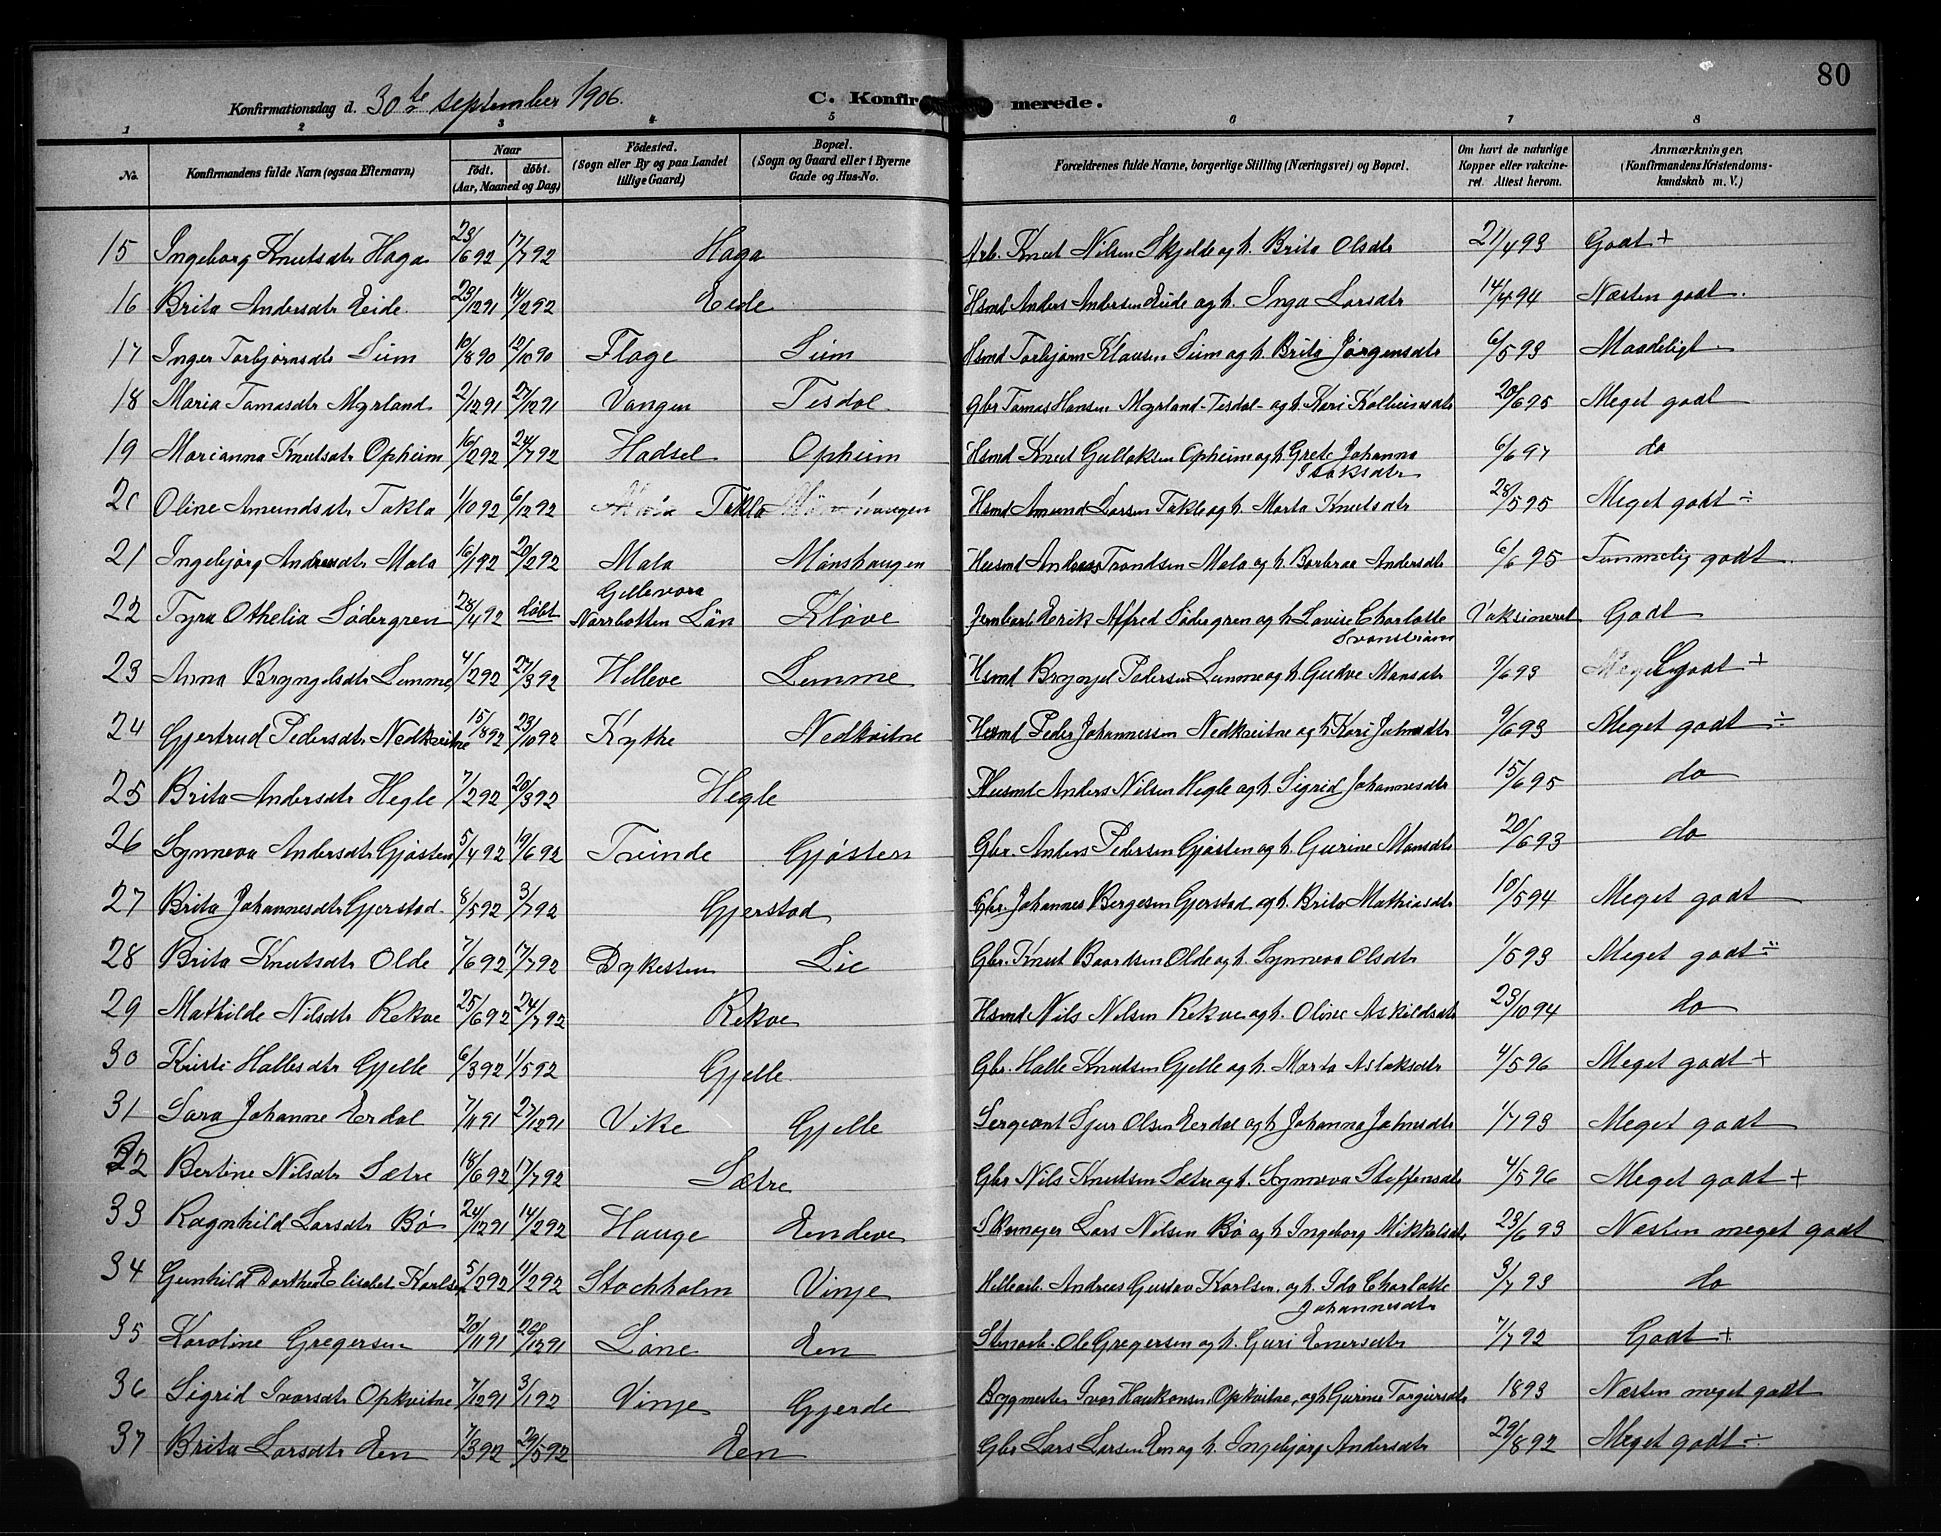 80
Konfirmationsdag d. 30te september 1906. C. Konfirmerede.
1 2 3 4 5 6 7 8
No. Konfirmandens fulde Navn (ogsaa Efternavn) Naar født. døbt. (Aar, Maaned og Dag) Fødested. (Sogn eller By og paa Landet tillige Gaard) Bopæl. (Sogn og Gaard eller i Byerne Gade og Hus-No. Forældrenes fulde Navne, borgerlige Stilling (Næringsvei) og Bopæl. Om havt de naturlige Kopper eller vakcineret. Attest herom. Anmærkninger. (Konfirmandens Kristendomskundskab m. V.)
15 Ingeborg Knutsdtr Haga 23/6 92 17/7 92 Haga Arb. Knut Nilsen Skjelde og h. Brita Olsdtr 21/4 93 Godt +
16 Brita Andersdtr Eide. 23/12 91 14/2 92 Eide Hsmd Anders Andersen Eide og h. Inga Larsdtr 14/4 94 Næsten godt.
17 Inger Torbjørnsdtr Liim 10/8 90 12/10 90 Flage Liim Hsmd Torbjørn Klausen Liim og h. Brita Jørgensdtr 6/5 93 Maadeligt
18 Maria Tomasdtr Myrland 2/12 91 27/12 91 Vangen Tesdal Gbr Tomas Hansen Myrland-Tesdal og h. Kari Kolbeinsdtr 20/6 95 Meget godt
19 Marianna Knutsdtr Opheim 16/2 92 24/7 92 Hadsel Opheim Hsmd Knut Gullaksen Opheim og h. Grete Johanna Isaksdtr 6/6 97 do
20 Oline Amundsdtr Takla 1/10 92 6/12 92 Takla Hsmd Amund Larsen Takle og h. Marta Knutsdtr 28/5 95 Meget godt ÷
21 Ingebjørg Andreasdtr Mala 16/1 92 20/2 92 Mala Mønshaugen Husmd Andreas Trondsen Mala og h. Barbraa Andersdtr 6/6 95 Temmelig godt
22 Tyra Othelia Södergren 28/4 92 døbt Gellevora Norrbotten Län Kløve Jernbarb Eerik Alfred Södergren og h. Lovise Charlotte Svanström Vaksineret Godt
23 Anna Bryngelsdtr Lemme 4/2 92 27/3 92 Helleve Lemme Hsmd Bryngel Pedersen Lemme og h. Gudve Mansdtr 9/6 93 godt +
24 Gjertrud Pedersdtr Nedkvitne 15/8 92 23/10 92 Kythe Nedkvitne Husmd Peder Johannessen Nedkvitne og h. Kari Johnsdtr 9/6 93 Meget godt ÷
25 Brita Andersdtr Hegle 7/2 92 20/3 92 Hegle Husmd Anders Nilsen Hegle og h. Sigrid Johannesdtr 15/6 95 do
26 Synneva Andersdtr Gjøsten 5/4 92 19/6 92 Tvinde Gjøsten Gbr. Anders Pedersen Gjøsten og h. Gurine Mansdtr 20/6 93 do
27 Brita Johannesdtr Gjerstad. 8/5 92 3/7 92 Gjerstad Gbr. Johannes Bergesen Gjerstad og h. Brita Mathiasdtr 10/5 94 Meget godt
28 Brita Knutsdtr Olde 7/6 92 17/7 92 Dykesten Lie Gbr. Knut Baardsen Olde og h. Synneva Olsdtr 1/5 93 Meget godt ÷
29 Mathilde Nilsdtr Rekve 25/6 92 24/7 92 Rekve Hsmd Nils Nilsen Rekve og h. Oline Askildsdtr 23/10 94 do
30 Kristi Hallesdtr Gjelle 6/3 92 1/5 92 Gjelle. Gbr. Halle Knutsen Gjelle og h. Marta Aslaksdtr 4/5 96 Meget godt +
31 Sara Johanne Erdal 7/11 91 27/12 91 Vike Gjelle Sergeant Sjur Olsen Erdal og h. Johanna Johnsdtr 1/7 93 Meget godt
32 Bertine Nilsdtr Sætre 18/6 92 17/7 92 Sætre Gbr Nils Knutsen Sætre og h. Synneva Steffensdtr 4/5 96 Meget godt +
33 Ragnhild Larsdtr Bø 24/12 91 14/2 92 Hauge Endeve Skomager Lars Nilsen Bø og h. Ingeborg Mikkelsdtr 23/6 93 Næsten meget godt
34 Gunhild Dorthea Elisabet Karlsen 5/2 92 11/2 92 Stockholm Vinje Hellearb. Andreas Gustav Karlsen og h. Ida Charlotte Johannesdtr 3/7 93 do
35 Karoline Gregersen 20/11 91 26/12 91 Løne Een Stenarb. Ole Gregersen og h. Guri Enersdtr 7/7 92 Godt +
36 Sigrid Ivarsdtr Opkvitne 7/12 91 3/1 92 Vinje Gjerde Bygmester Ivar Haukonsen Opkvitne, og h. Gurine Torgersdtr 1893 Næsten meget godt
37 Brita Larsdtr Een 7/3 92 29/5 92 Een Gbr Lars Larsen Een og h. Ingebjørg Andersdtr 29/8 92 Meget godt ÷